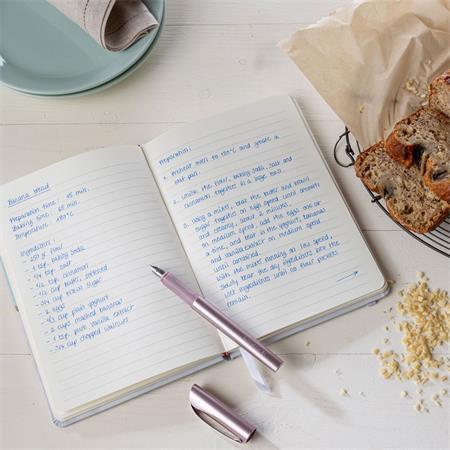 Banana bread
Preparation time: 45 min.
Baking time: 65 min.
Temperature: 180°C
Ingredients:
- 250 g flour
- 1 tsp. baking soda
- 1/4 tsp. salt
- 1/2 tsp. cinnamon
- 1/2 cup butter, softened
- 3/4 cup brown sugar
- 2 eggs
- 1/3 cup plain yoghurt
- 2 cups mashed bananas
- 1 tsp. pure vanilla extract
- 3/4 cup chopped walnuts
Preparation:
1. Preheat oven to 180°C and grease a
loaf pan.
2. Whisk the flour, baking soda, salt and
cinnamon together in a large bowl.
3. Using a mixer, beat the butter and brown
sugar together on high speed until smooth
and creamy, about 2 minutes.
on medium speed, add the eggs one at
a time, and beat in the yoghurt, bananas
and vanilla extract on medium speed
until combined.
With the mixer running on low speed,
slowly beat the dry ingredients into the
wet ingredients until no flour pockets
remain.